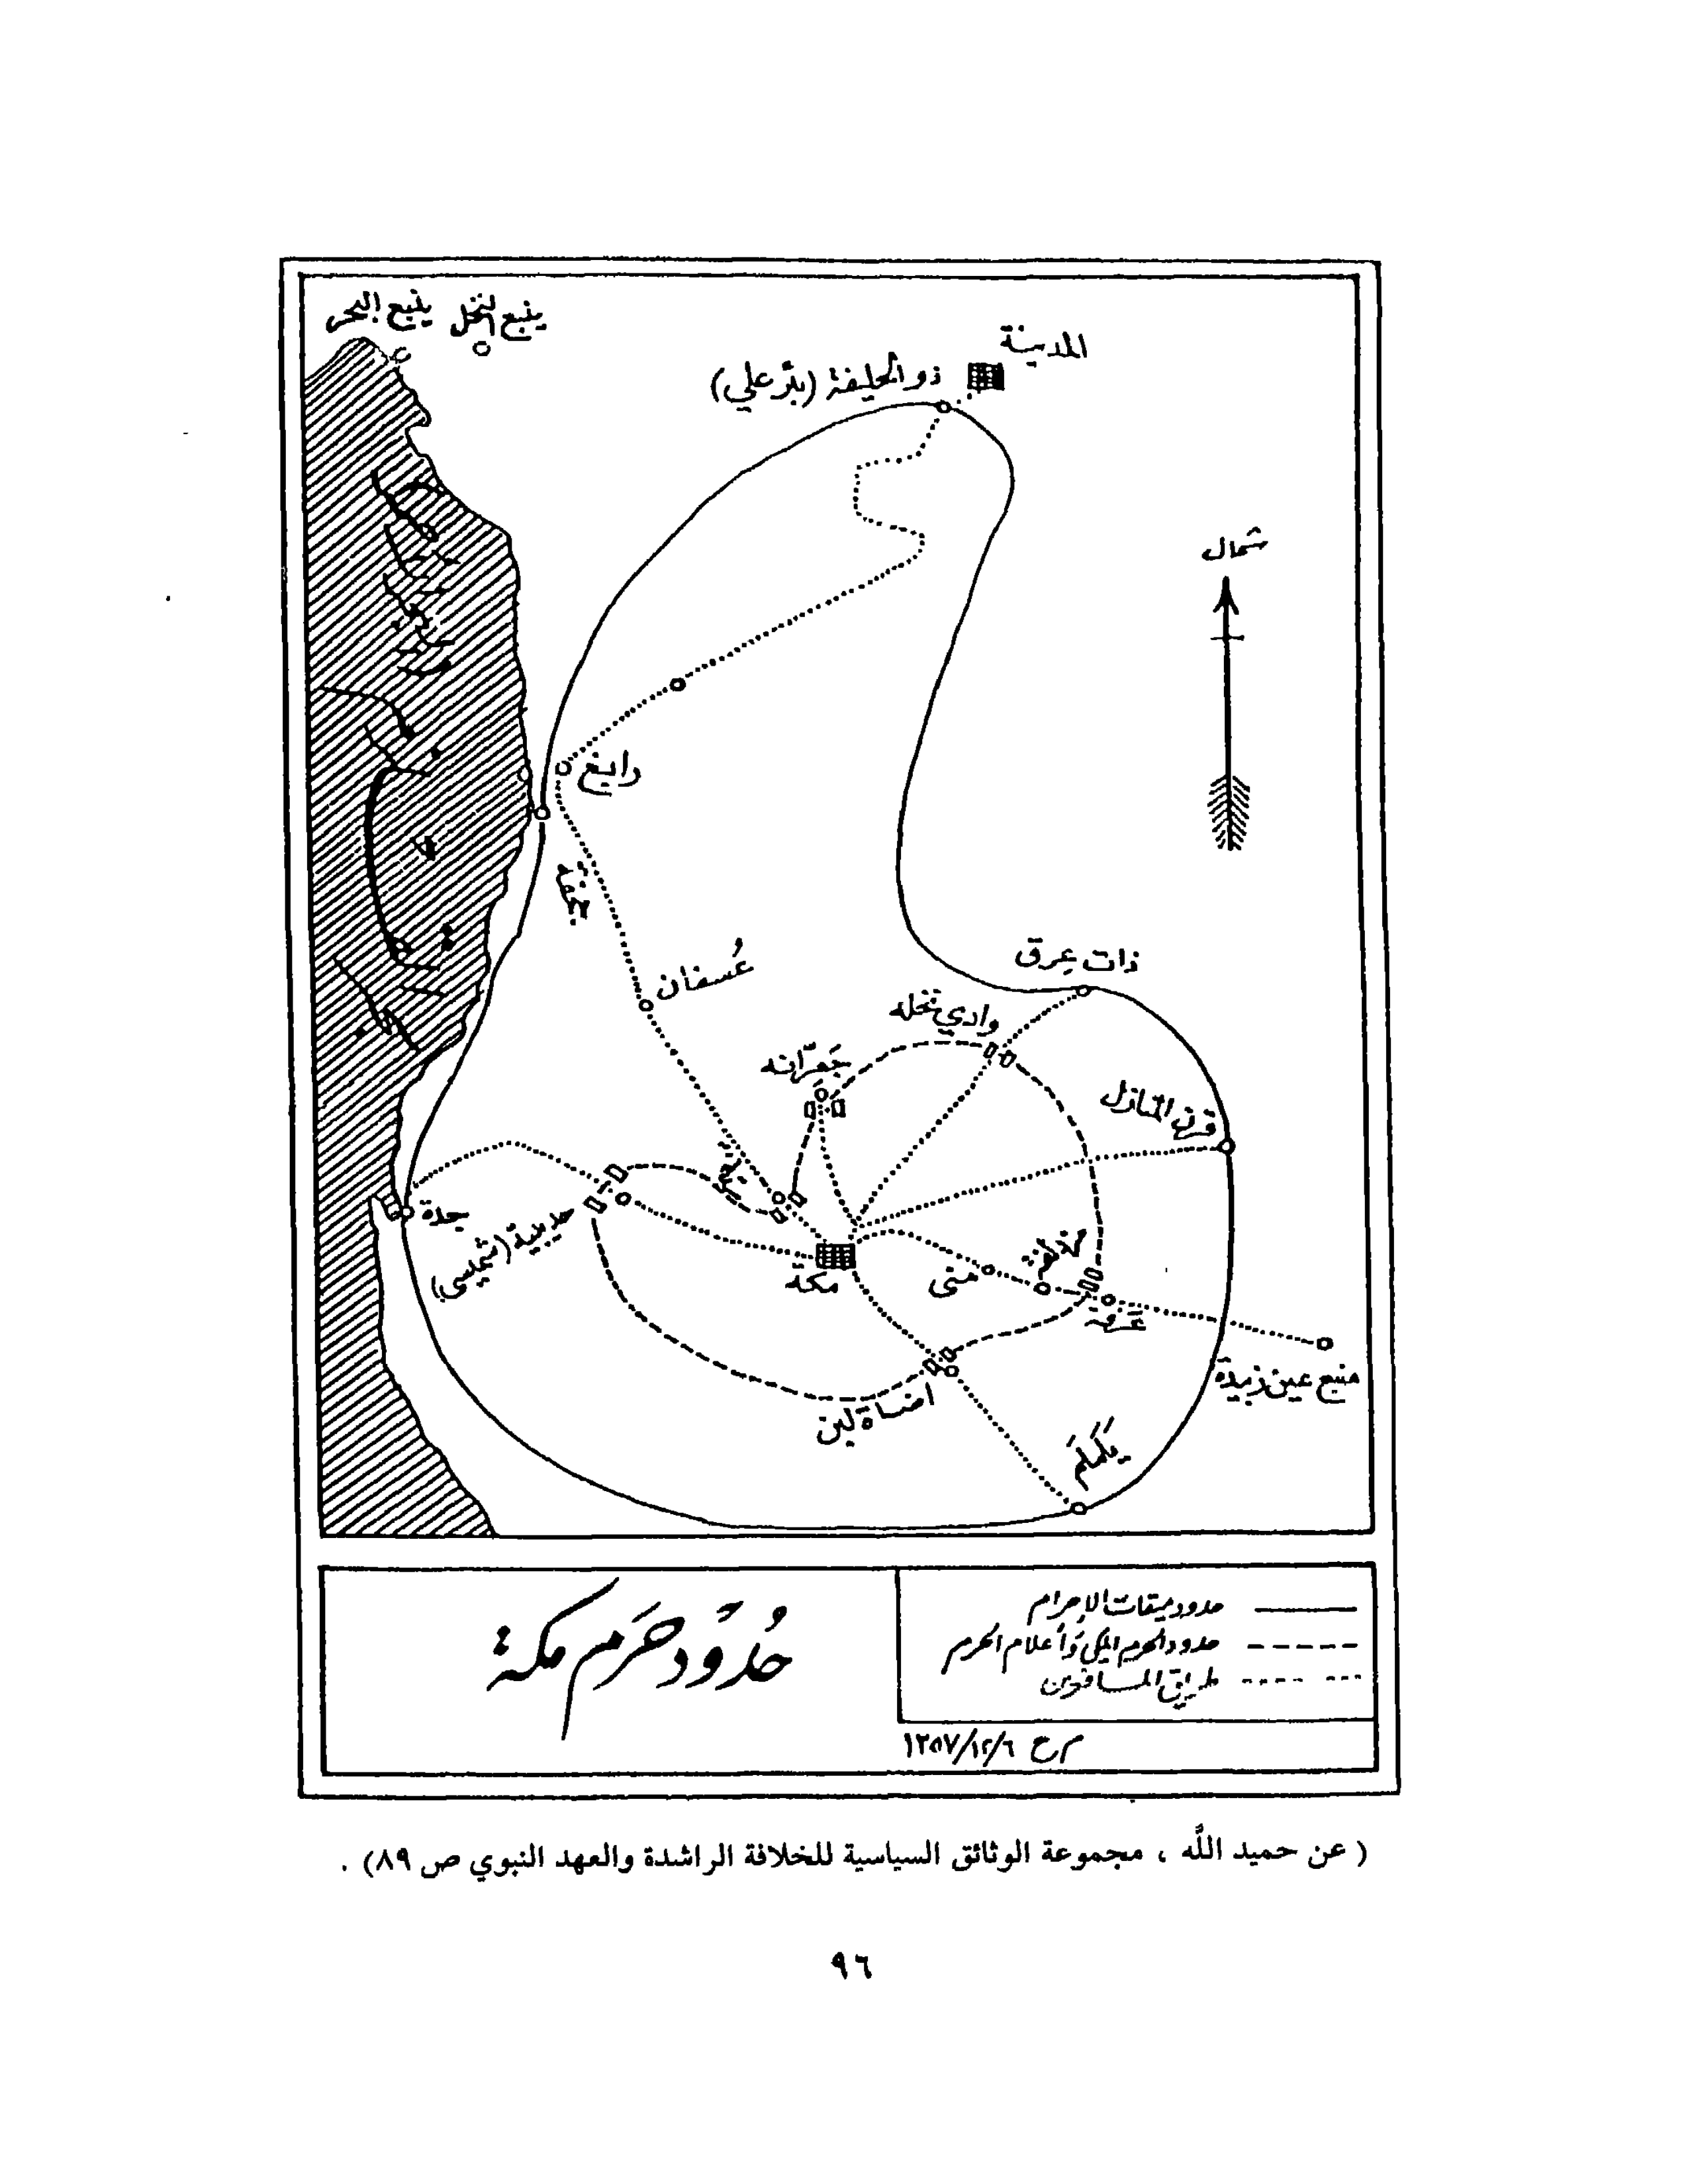 ينبع البحر
ينبع النخل
المدينة
ذو الحليفة (بئر علي)
شمال
رابغ
جحفة
عُسفان
ذات عِرق
وادي نخله
جعرّانه
قرن المنازل
جدة
حديبية (شميسي)
مكة
منى
مزدلفة
عَرَفة
منبع عين زبيدة
اضاة لبن
يَلَملَم
حدود ميقات الإحرام
حدود الحرم المكي وأعلام الحرم
طريق المسافرين
حُدُود حَرَم مكة
م ح ١٣٥٧/١٢/٦
( عن حميد اللّه ، مجموعة الوثائق السياسية للخلافة الراشدة والعهد النبوي ص ٨٩) .
٩٦